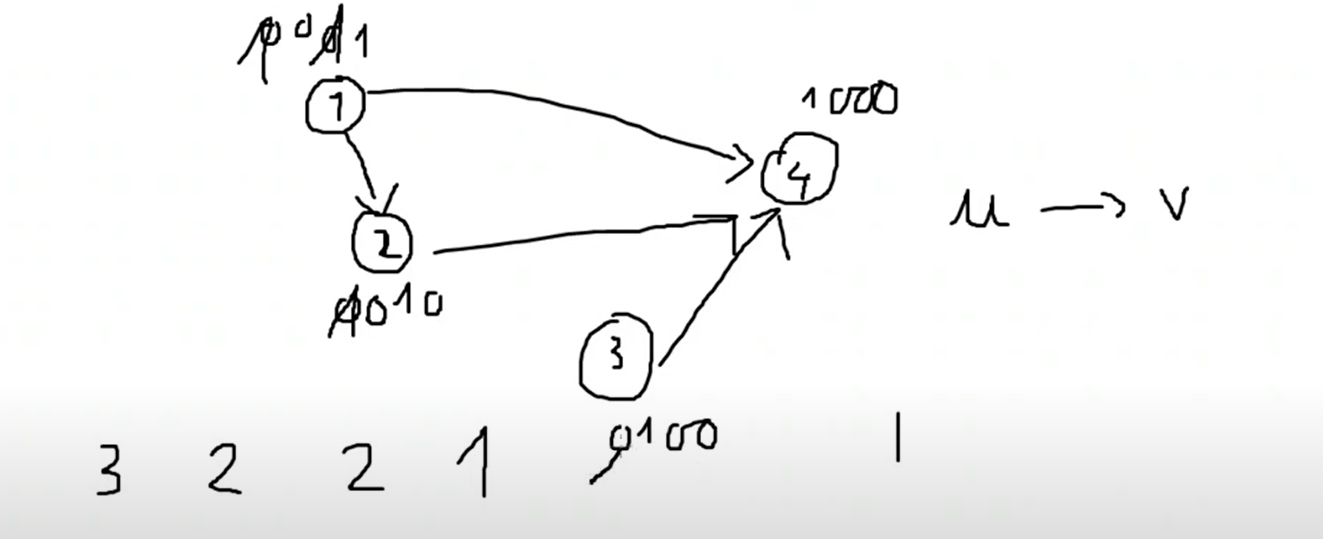 0001
1
1000
4
u → v
2
0010
3
0100
3 2 2 1